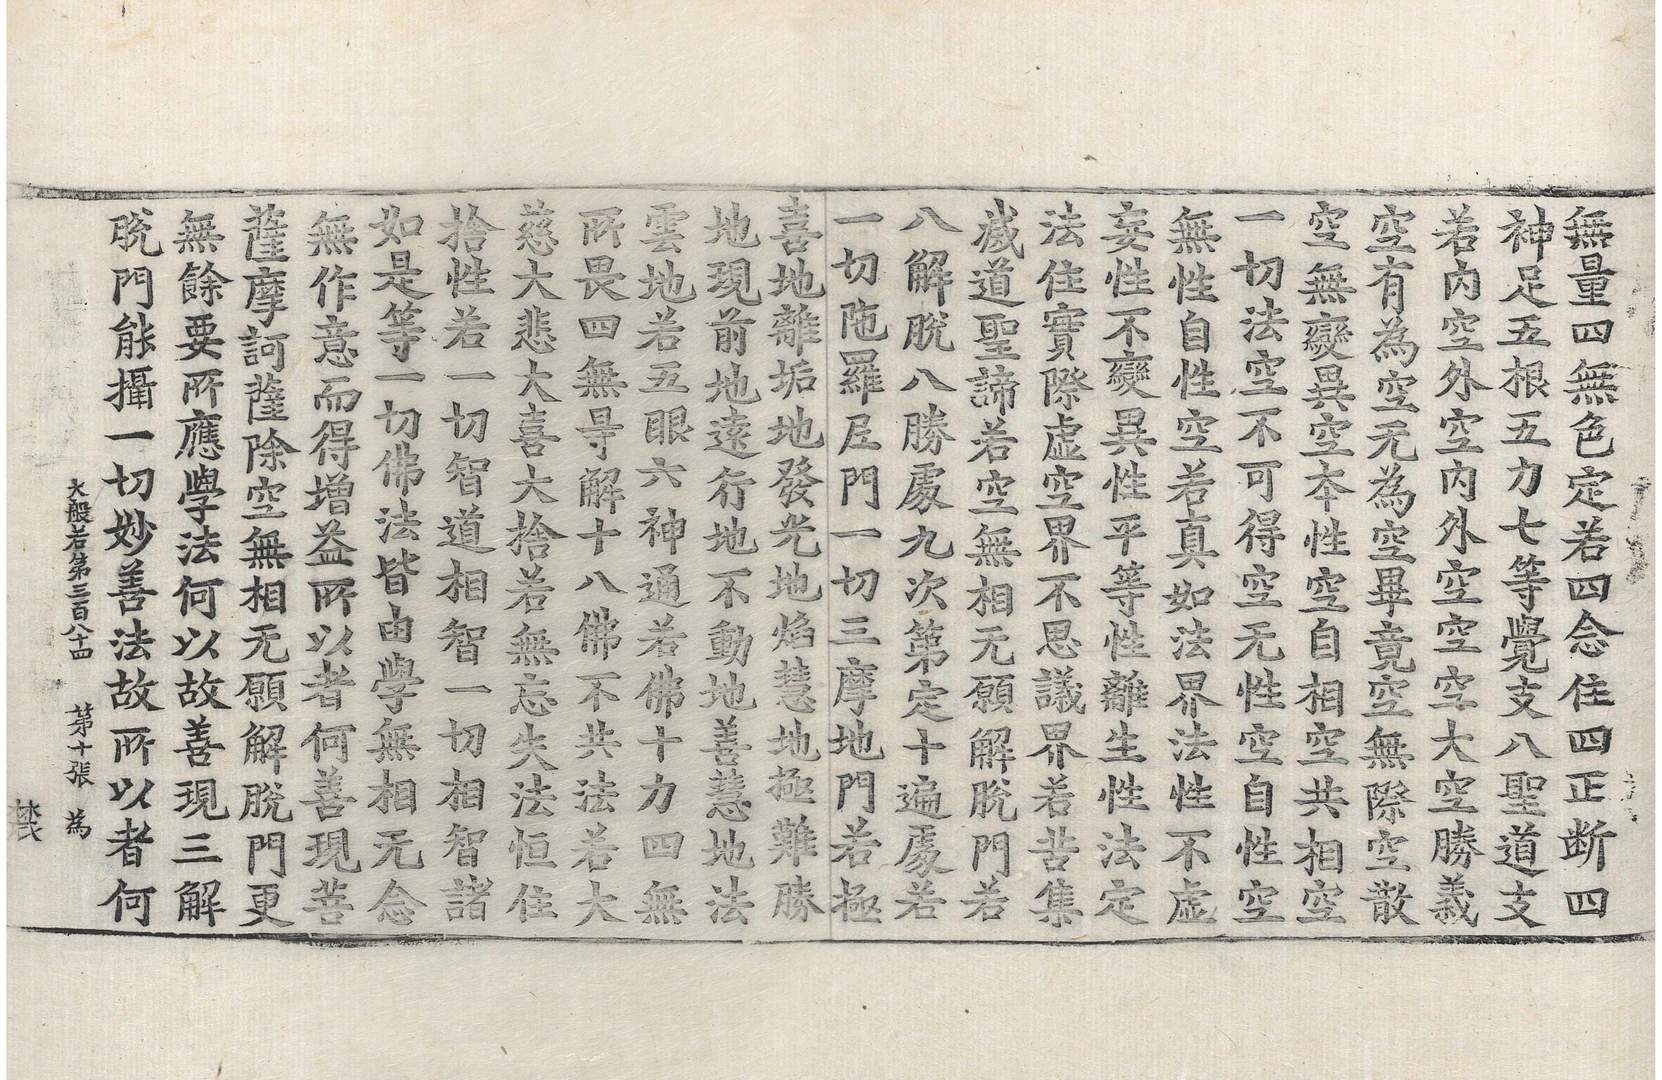 無量四無色定若四念住四正断四
神足五根五力七等覺支八聖道支
若內空外空內外空空空大空勝義
空有為空无為空畢竟空無際空散
空無變異空本性空自相空共相空
一切法空不可得空无性空自性空
無性自性空若真如法界法性不虛
妄性不變異性平等性離生性法定
法住實際虛空界不思議界若苦集
滅道聖諦若空無相无願解脫門若
八解脫八勝處九次第定十遍處若
一切陁羅尼門一切三摩地門若極
喜地離垢地發光地焰慧地極難勝
地現前地遠行地不動地善慧地法
雲地若五眼六神通若佛十力四無
所畏四無㝵解十八佛不共法若大
慈大悲大喜大捨若無忘失法恒住
捨性若一切智道相智一切相智諸
如是等一切佛法皆由學無相无念
無作意而得增益所以者何善現菩
薩摩訶薩除空無相无願解脫門更
無餘要所應學法何以故善現三解
脫門能攝一切妙善法故所以者何
大般若第三百八十四 第十張 為